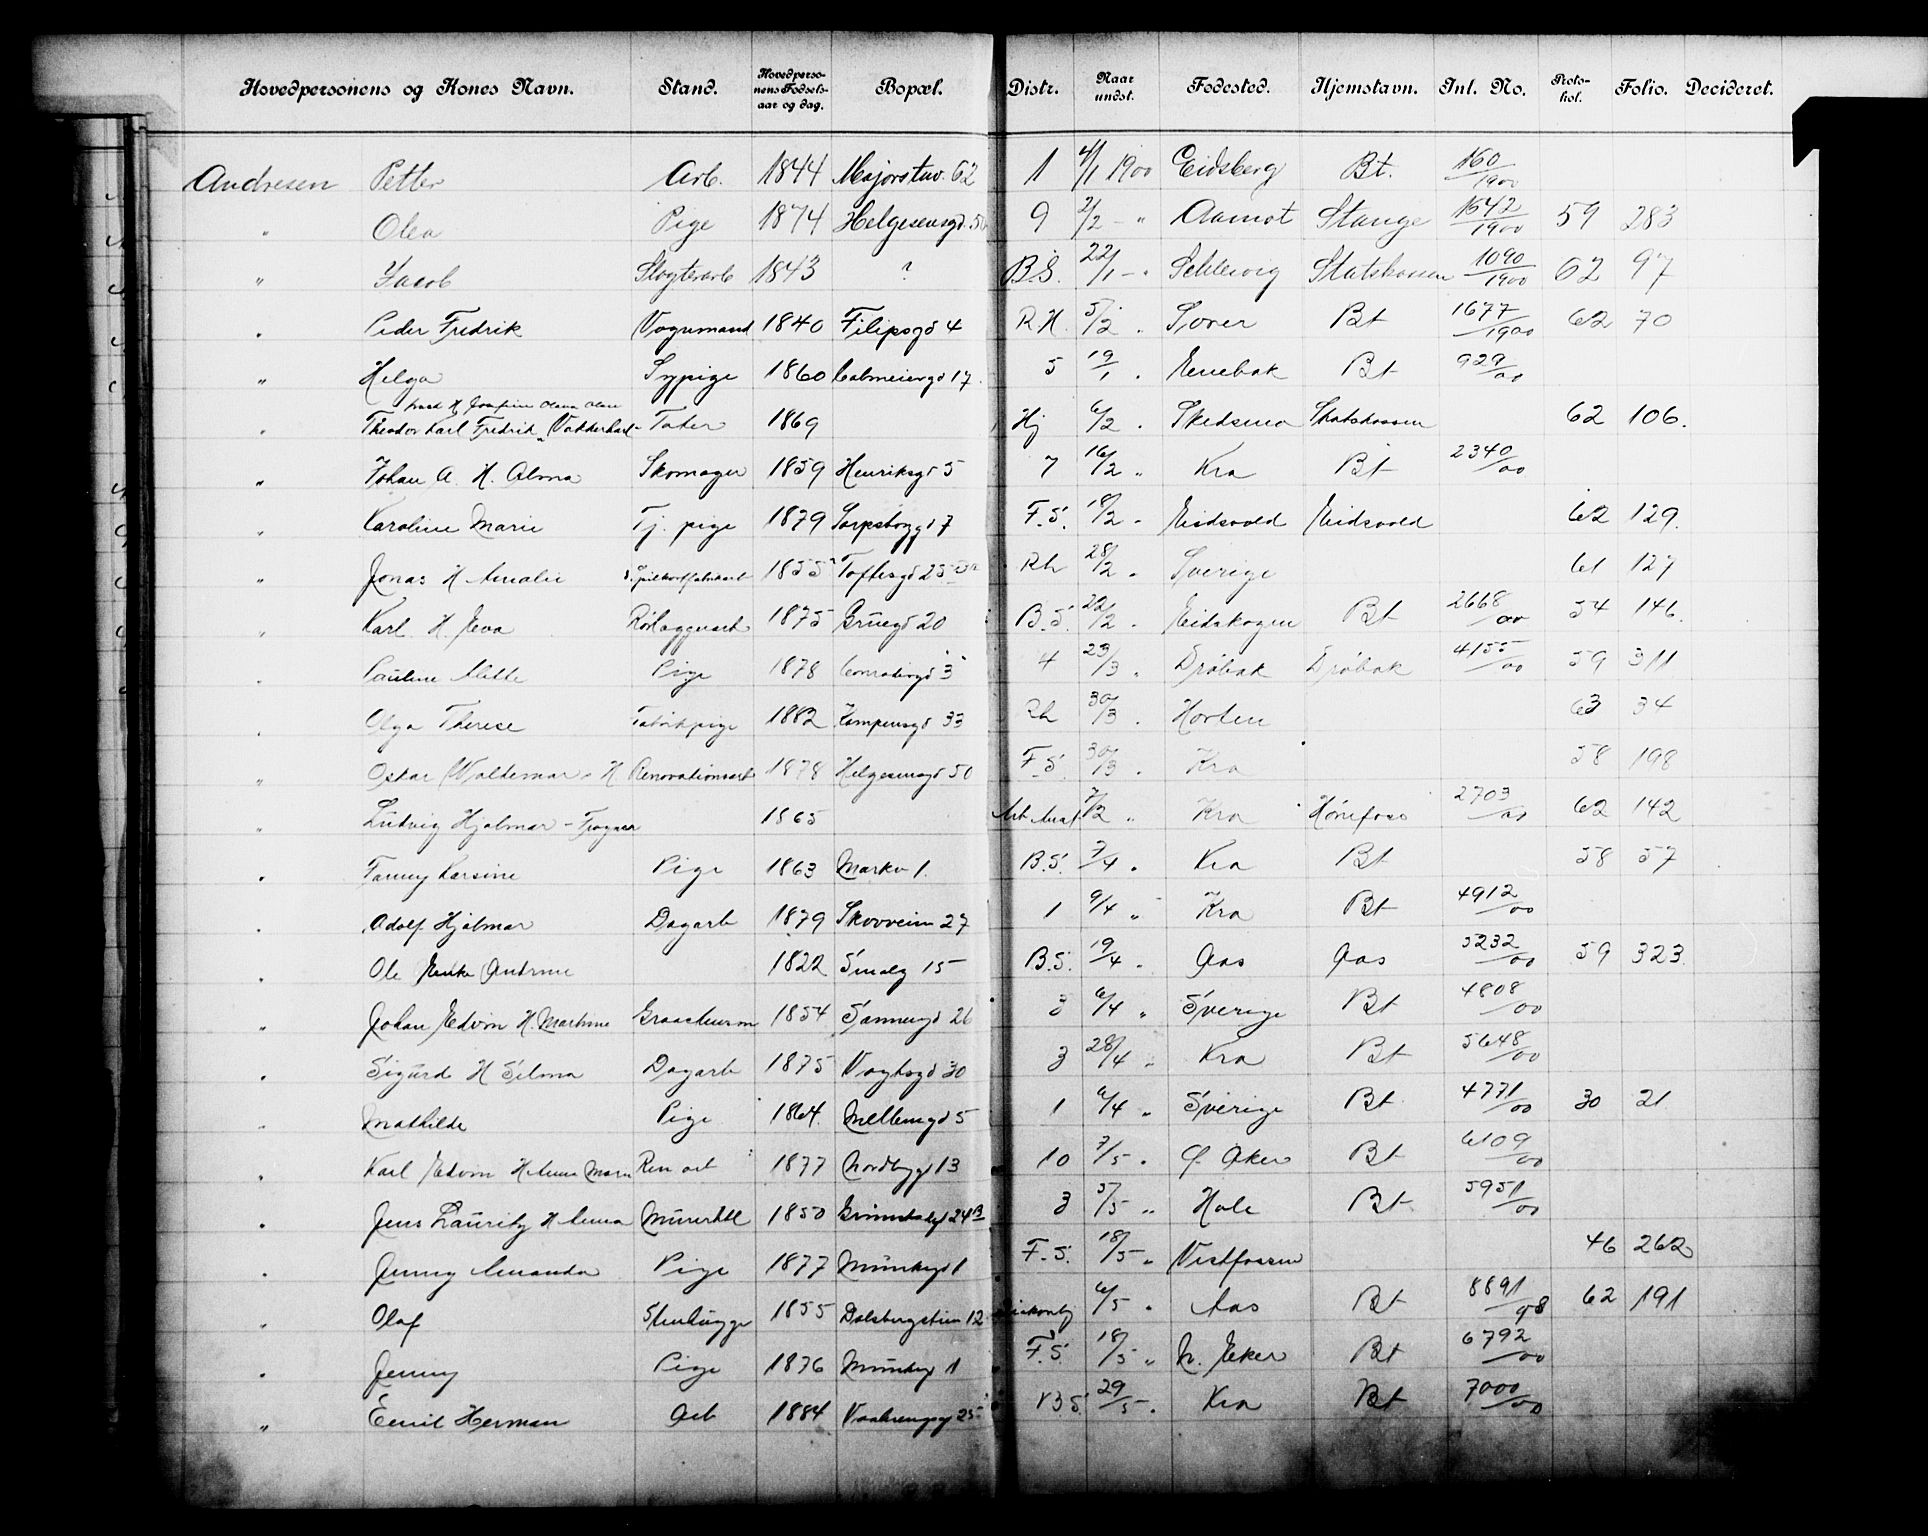 Hovedpersonens og Kones Navn. Stand. Hovedperso-nens Fødsels-aar og dag. Bopæl. Distr. Naar undst. Fødested. Hjemstavn. Int. No. Proto-kol. Folio. Decideret.
Andresen Petter Arb. 1844 Majorstuv. 62 1 4/1 1900 Eidsberg Bt. 160/1900
" Olea Pige 1874 Helgesensgd. 50 9 2/2 - " Aamot Stange 1642/1900 59 283
" Jacob Slagterarb 1843 ? B.S. 22/1 - " Schlesvig Statskassen 1090/1900 62 97
" Peder Fredrik Vognmand 1840 Filipsgd 4 R.H. 5/2 " Bt 1677/1900 62 70
" Helga Sypige 1860 Calmeiersgd 17. 5 19/1 " Enebak Bt 929/00
" Theodor Karl Fredrik Tater 1869 Hj 6/2 " Skedsmo Statskassen 62 106.
" Johan A. H. Alma Skomager 1859 Henriksgd 5 7 16/2 " Kra Bt 2340/00
" Karoline Marie Tj. pige 1879 Sarpsbogg 7 F.S. 18/2 " Eidsvold Eidsvold 62 129.
" Jonas H Amalie 1855 Toftesgd 25 Rh 28/2 " Sverige 61 127
" Karl H. Eva 1875 Gruegd 20 B.S. 22/2 " Eidskogen Bt 2668/00 54 146.
" Pauline Mette Pige 1878 Conradisgd 3 4 23/3 " Drøbak Drøbak 4155/00 59 311
" Olga Therese Fabrikpige 1882 Kampensgd 33 Rh 30/3 " Horten 63 34
" Oskar Waldemar H Renovationsarb 1878 Helgesensgd 50 F.S. 30/3 " Kra 58 198
" Ludvig Hjalmar - Fragner 1865 Arb Anst 7/2 " Kra Hønefoss 2703/00 62 142
" Fanny Karsine Pige 1863 Markv 1. B.S. 7/4 " Kra Bt 58 57
" Adolf Hjalmar Dagarb 1879 Skovveien 27 1 9/4 " Kra Bt 4912/00
" Ole Enke Andrine 1822 Smalg 15 B.S. 19/4 " Aas Aas 5232/00 59 323.
" Johan Edvin H. Martine 1854 Sannergd 26 3 6/4 " Sverige Bt 4808/00
" Sigurd H Selma Dagarb 1875 Vogtsgd 30 3 28/4 " Kra Bt 5648/00
" Mathilde Pige 1864. Mellemgd 5 1 6/4 " Sverige Bt 4771/00 30 21
" Karl Edvin H Anna Marie Ren arb 1877 Nordbygd 13 10 7/5 " Ø. Aker Bt 6109/00
" Jens Lauritz H Anna 1850 24B 3 5/5 " Hole Bt 5951/00
" Jenny Amanda Pige 1877 Munkegd 1 F.S. 18/5 " Vestfossen 46 262
" Olaf Stenhugger 1855 Dalsbergstien 12 6/5 " Aas Bt 8891/98 62 191
" Jenny Pige 1876 Munkeg 1 F.S. 18/5 " N. Eker Bt 6792/00
" Emil Herman Arb 1884 Vaalerengg 25 B.S. 29/5 " Kra Bt 7000/00